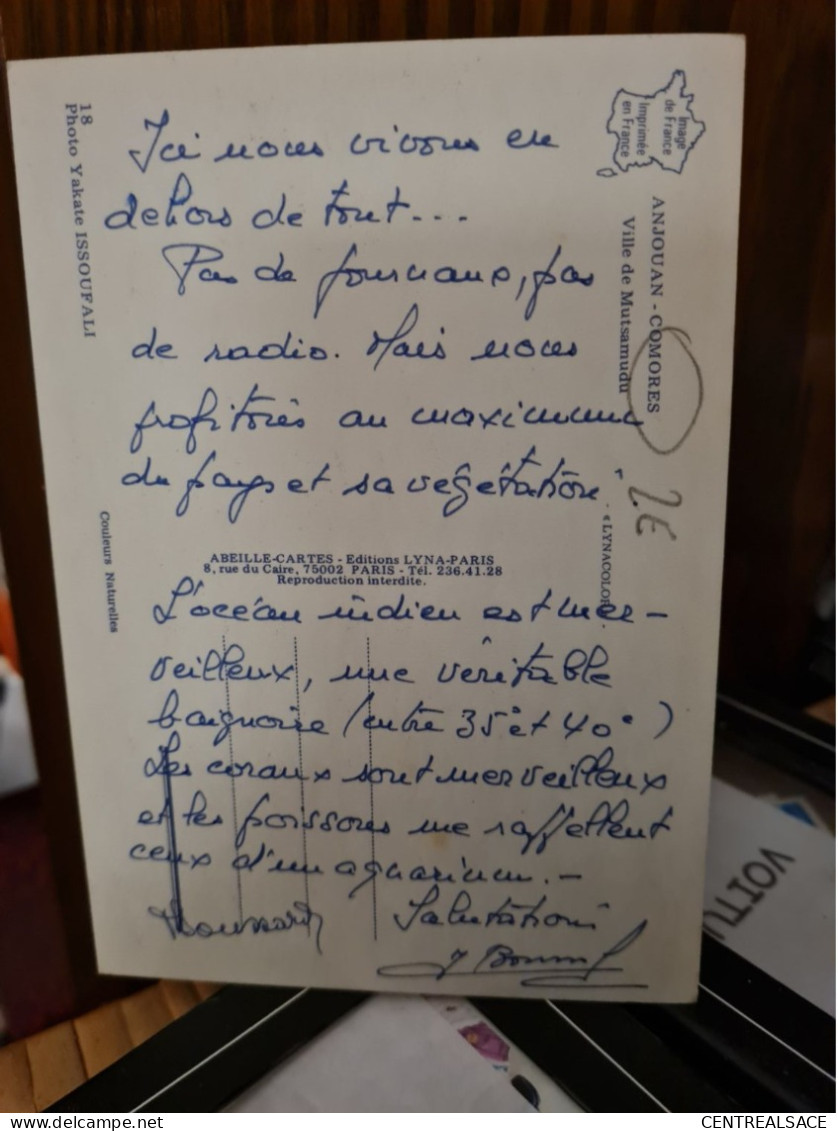 Ici nous vivons en
dehors de tout...
Pas de journaux, pas
de radio. Mais nous
profitons au maximum
du pays et sa végétation
L'océan indien est mer-
veilleux, une véritable
baignoire (entre 35° et 40°)
Les coraux sont merveilleux
et les poissons me rappellent
ceux d'un aquarium.-
Salutations
ABEILLE-CARTES - Editions LYNA-PARIS
8, rue du Caire, 75002 PARIS - Tél. 236.41.28
Reproduction interdite.
18
Photo Yakate ISSOUFALI
Couleurs Naturelles
Image
de France
Imprimée
en France
ANJOUAN - COMORES
Ville de Mutsamudu
« LYNACOLOR
2E
VOITU
CENTREALSACE